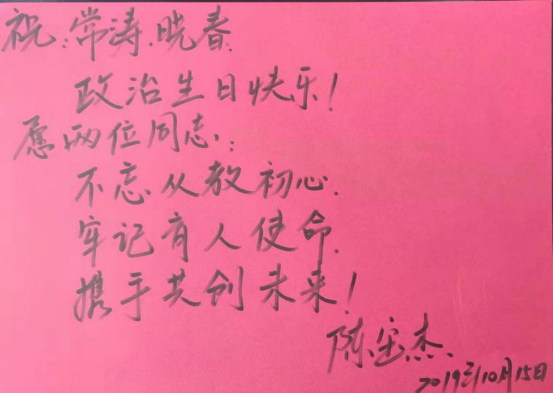 祝:常涛.晓春.
政治生日快乐!
愿两位同志:
不忘从教初心.
牢记育人使命.
携手共创未来!
陈宝杰.
2019年10月15日